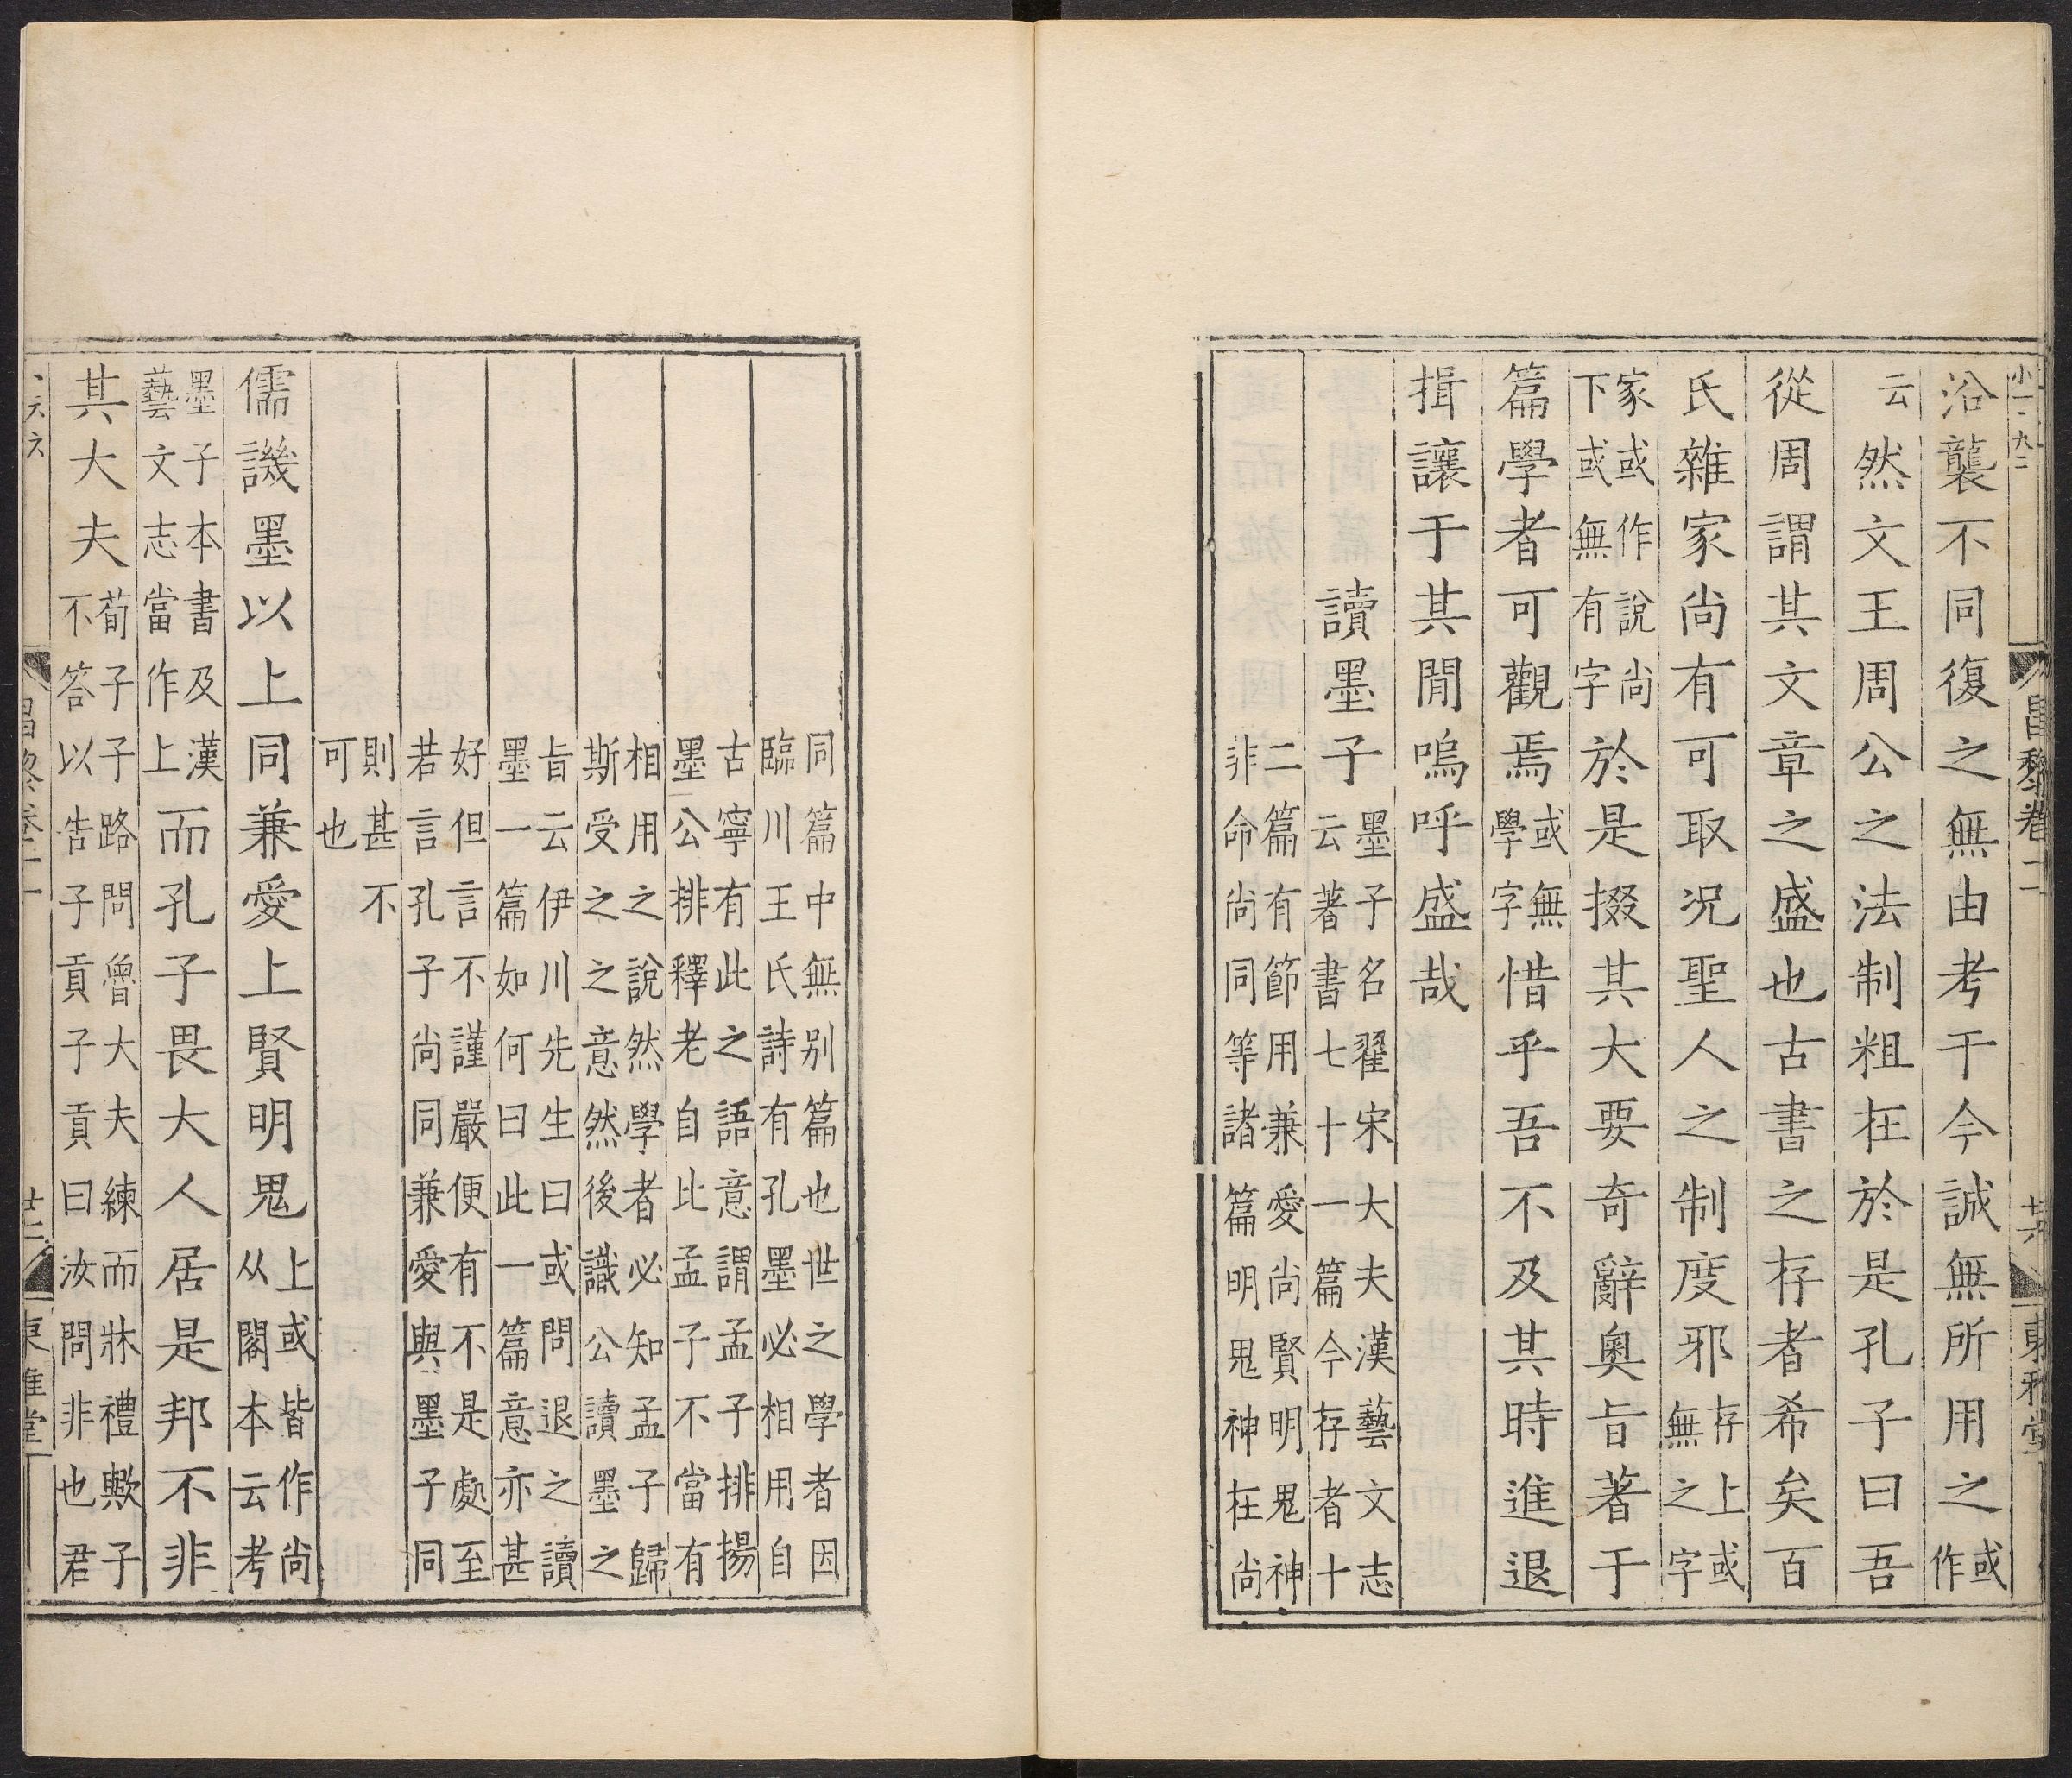 沿襲不同復之無由考于今誠無所用之或作
云然文王周公之法制粗在於是孔子曰吾
從周謂其文章之盛也古書之存者希矣百
氏雜家尚有可取況聖人之制度邪存上或無之字
家或作說尚下或無有字於是掇其大要奇辭奧旨著于
篇學者可觀焉或無學字惜乎吾不及其時進退
揖讓于其閒嗚呼盛哉
讀墨子墨子名翟宋大夫漢藝文志云著書七十一篇今存者十
二篇有節用兼愛尚賢明鬼神非命尚同等諸篇明鬼神在尚
昌黎卷十一
東雅堂
同篇中無别篇也世之學者因臨川王氏詩有孔墨必相用自
古寧有此之語意謂孟子排揚墨公排釋老自比孟子不當有
相用之之說然學者必知孟子歸斯受之之意然後識公讀墨之
旨云伊川先生曰或問退之讀墨一篇如何曰此一篇意亦甚
好但言不謹嚴便有不是處至若言孔子尚同兼愛與墨子同
則甚不可也
儒譏墨以上同兼愛上賢明鬼上或皆作尚从閣本云考
墨子本書及漢藝文志當作上而孔子畏大人居是邦不非
其大夫荀子子路問魯大夫練而牀禮歟子不答以告子貢子貢曰汝問非也君
昌黎卷十一
東雅堂